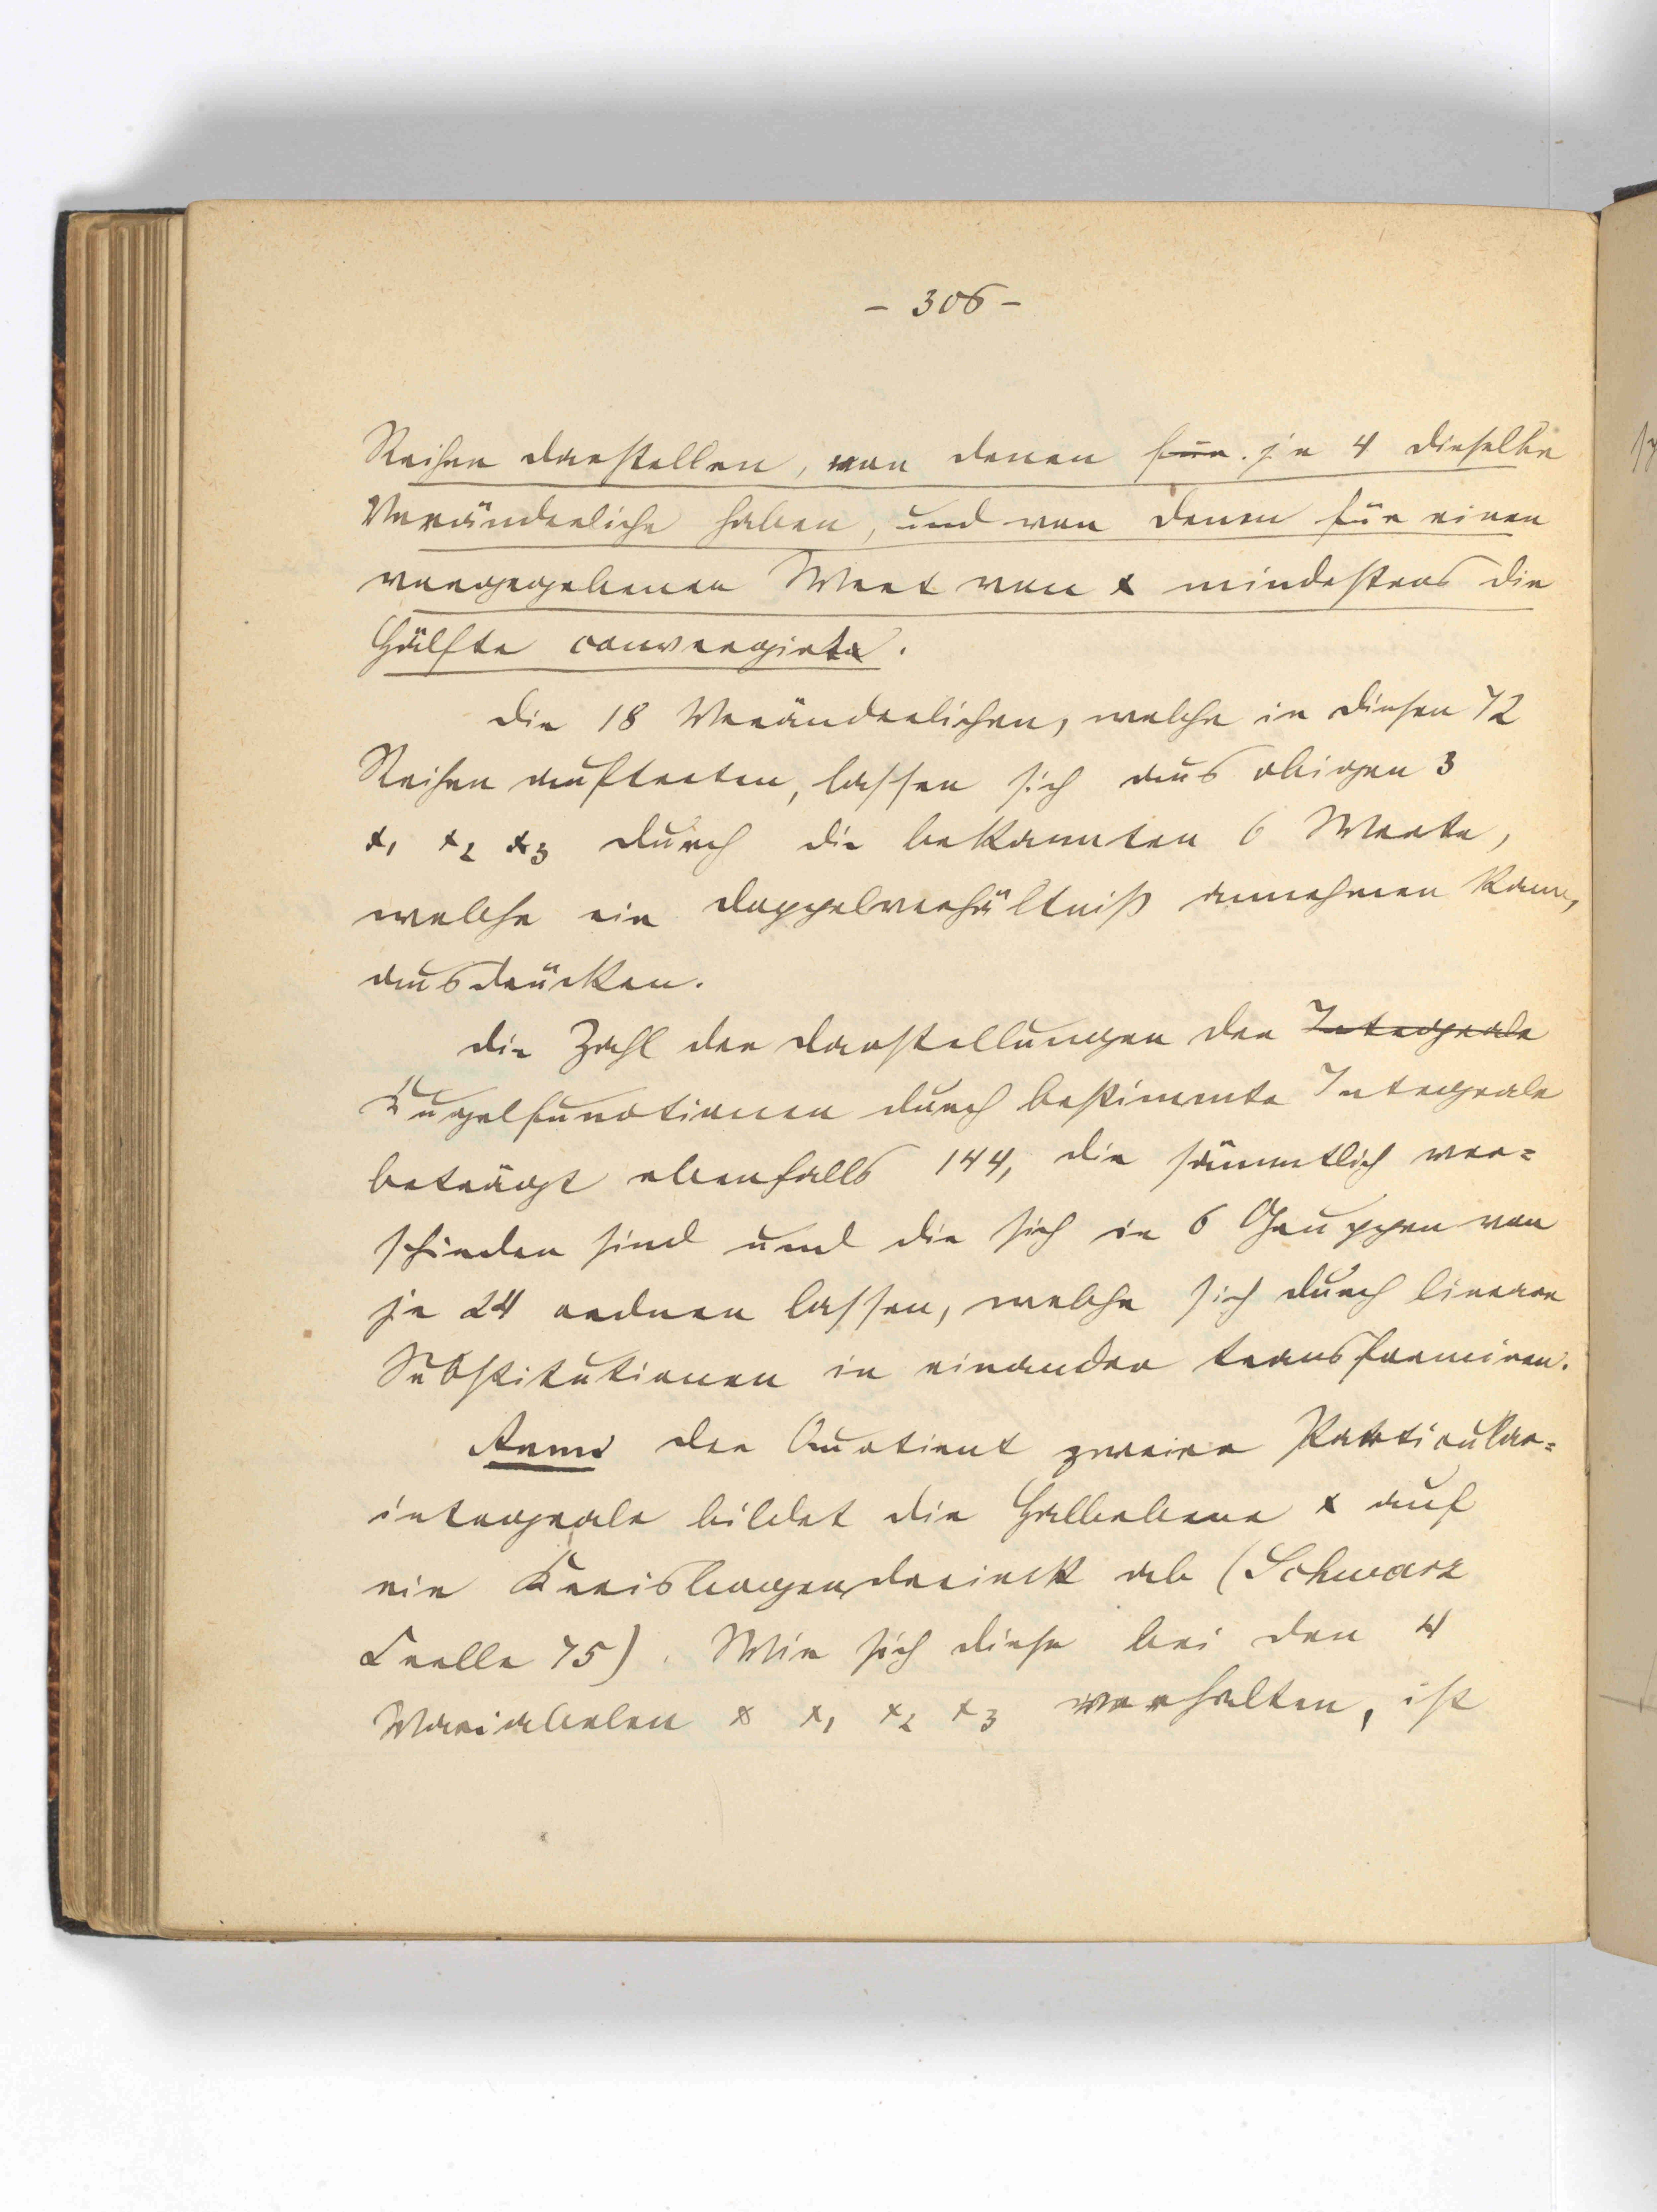 - 306 -
Reihen darstellen, von denen für je 4 dieselbe
Veränderliche haben, und von denen für einen
vorgegebenen Wert von x mindestens die
Hälfte convergirt.
Die 18 Veränderlichen, welche in diesen 72
Reihen auftreten, lassen sich aus obigen 3
x₁ x₂ x₃ durch die bekannten 6 Werte,
welche ein Doppelverhältniß annehmen kann,
ausdrücken.
Die Zahl der Darstellungen der Integrale
Kugelfunctionen durch bestimmte Integrale
beträgt ebenfalls 144, die sämmtlich ver=
schieden sind und die sich in 6 Gruppen von
je 24 ordnen lassen, welche sich durch lineare
Substitutionen in einander transformiren.
Anm. Der Quotient zweier Partikular=
integrale bildet die Halbebene x auf
ein Kreisbogendreieck ab (Schwarz
Crelle 75). Wie sich diese bei den 4
Variabelen x x₁ x₂ x₃ verhalten, ist